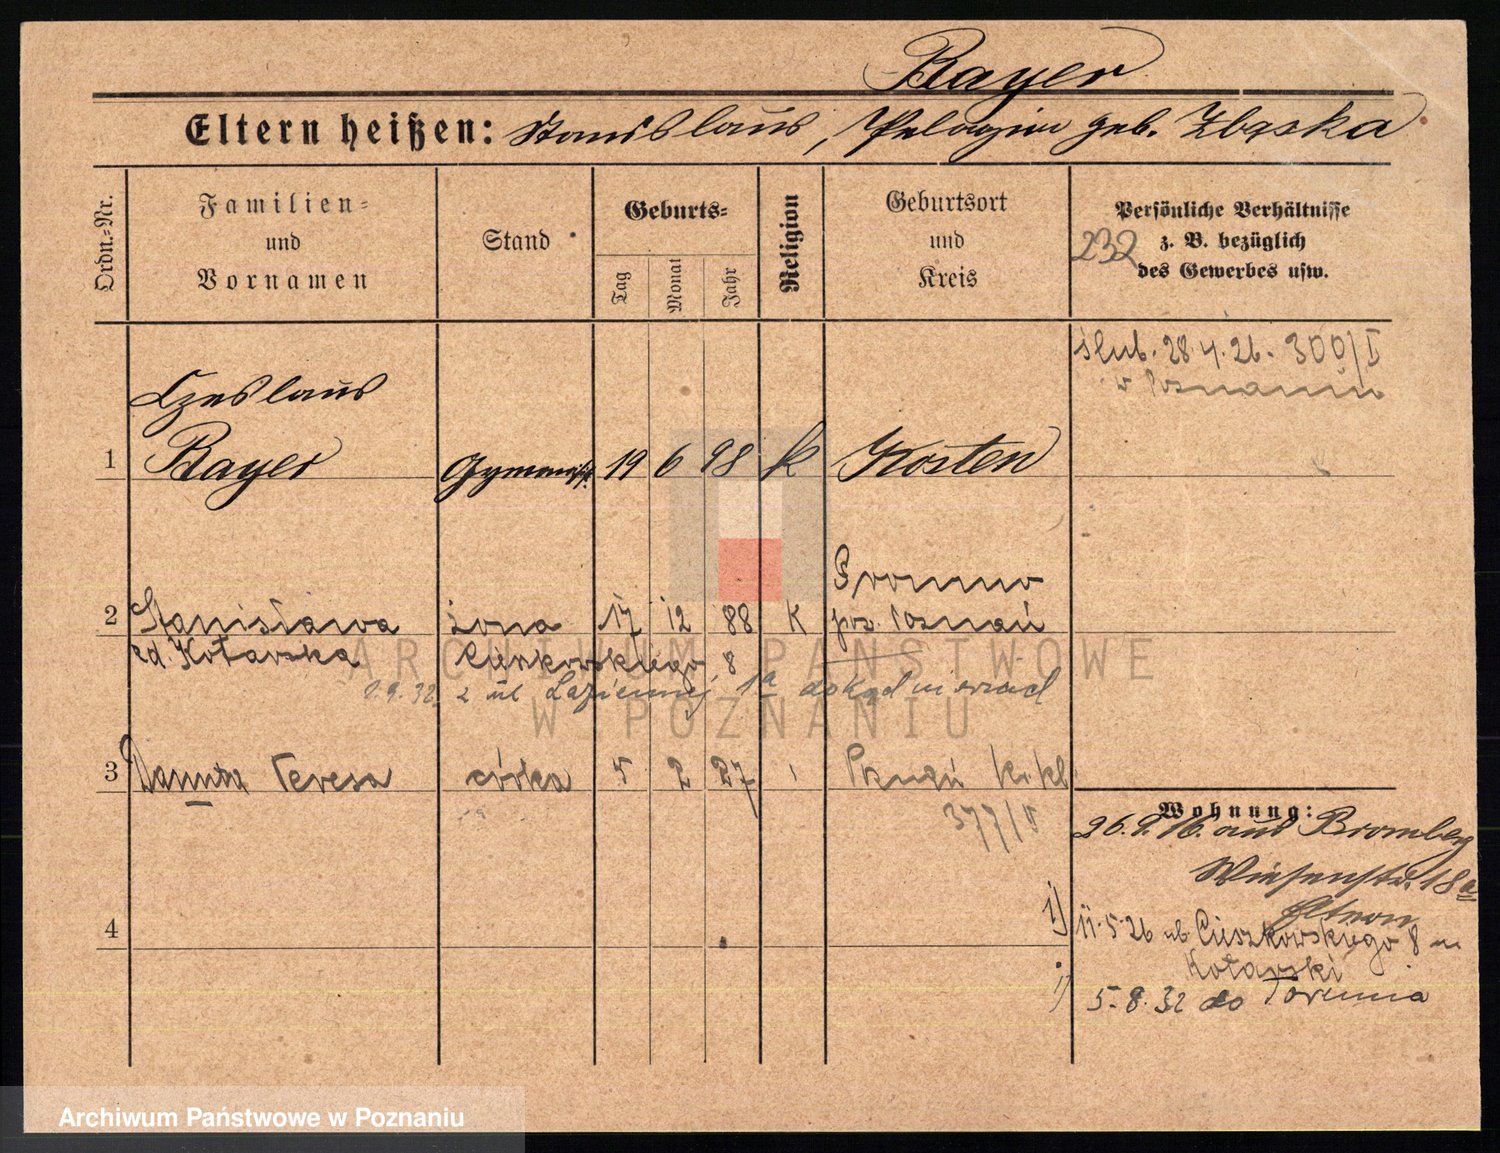 Bayer
Eltern heißen: Stanislaus, Pelagia geb. Zbąska
Ordn.-Nr.
Familien-
und
Vornamen
Stand
Geburts-
Tag
Monat
Jahr
Religion
Geburtsort
und
Kreis
Persönliche Verhältnisse
z. B. bezüglich
des Gewerbes usw.
232
ślub. 28.4.26. 300/I
w Poznaniu
Czeslaus
1 Bayer 19 6 98 k Kosten
2 Stanisława żona 17 12 88 K
pow. Poznań
zd. Kotarska Cieszkowskiego 8
1.9.32. z ul Łaziennej 1a dokąd
3 Danuta Teresa córka 5 2 27 Poznań
377/V
4
Wohnung:
26.9.16. aus Bromberg
Wiesenstr. 18a
Eltern
1) 11.5.26 ul. Cieszkowskiego 8
Kotarski
5.8.32 do Torunia
ARCHIWUM PAŃSTWOWE
W POZNANIU
Archiwum Państwowe w Poznaniu